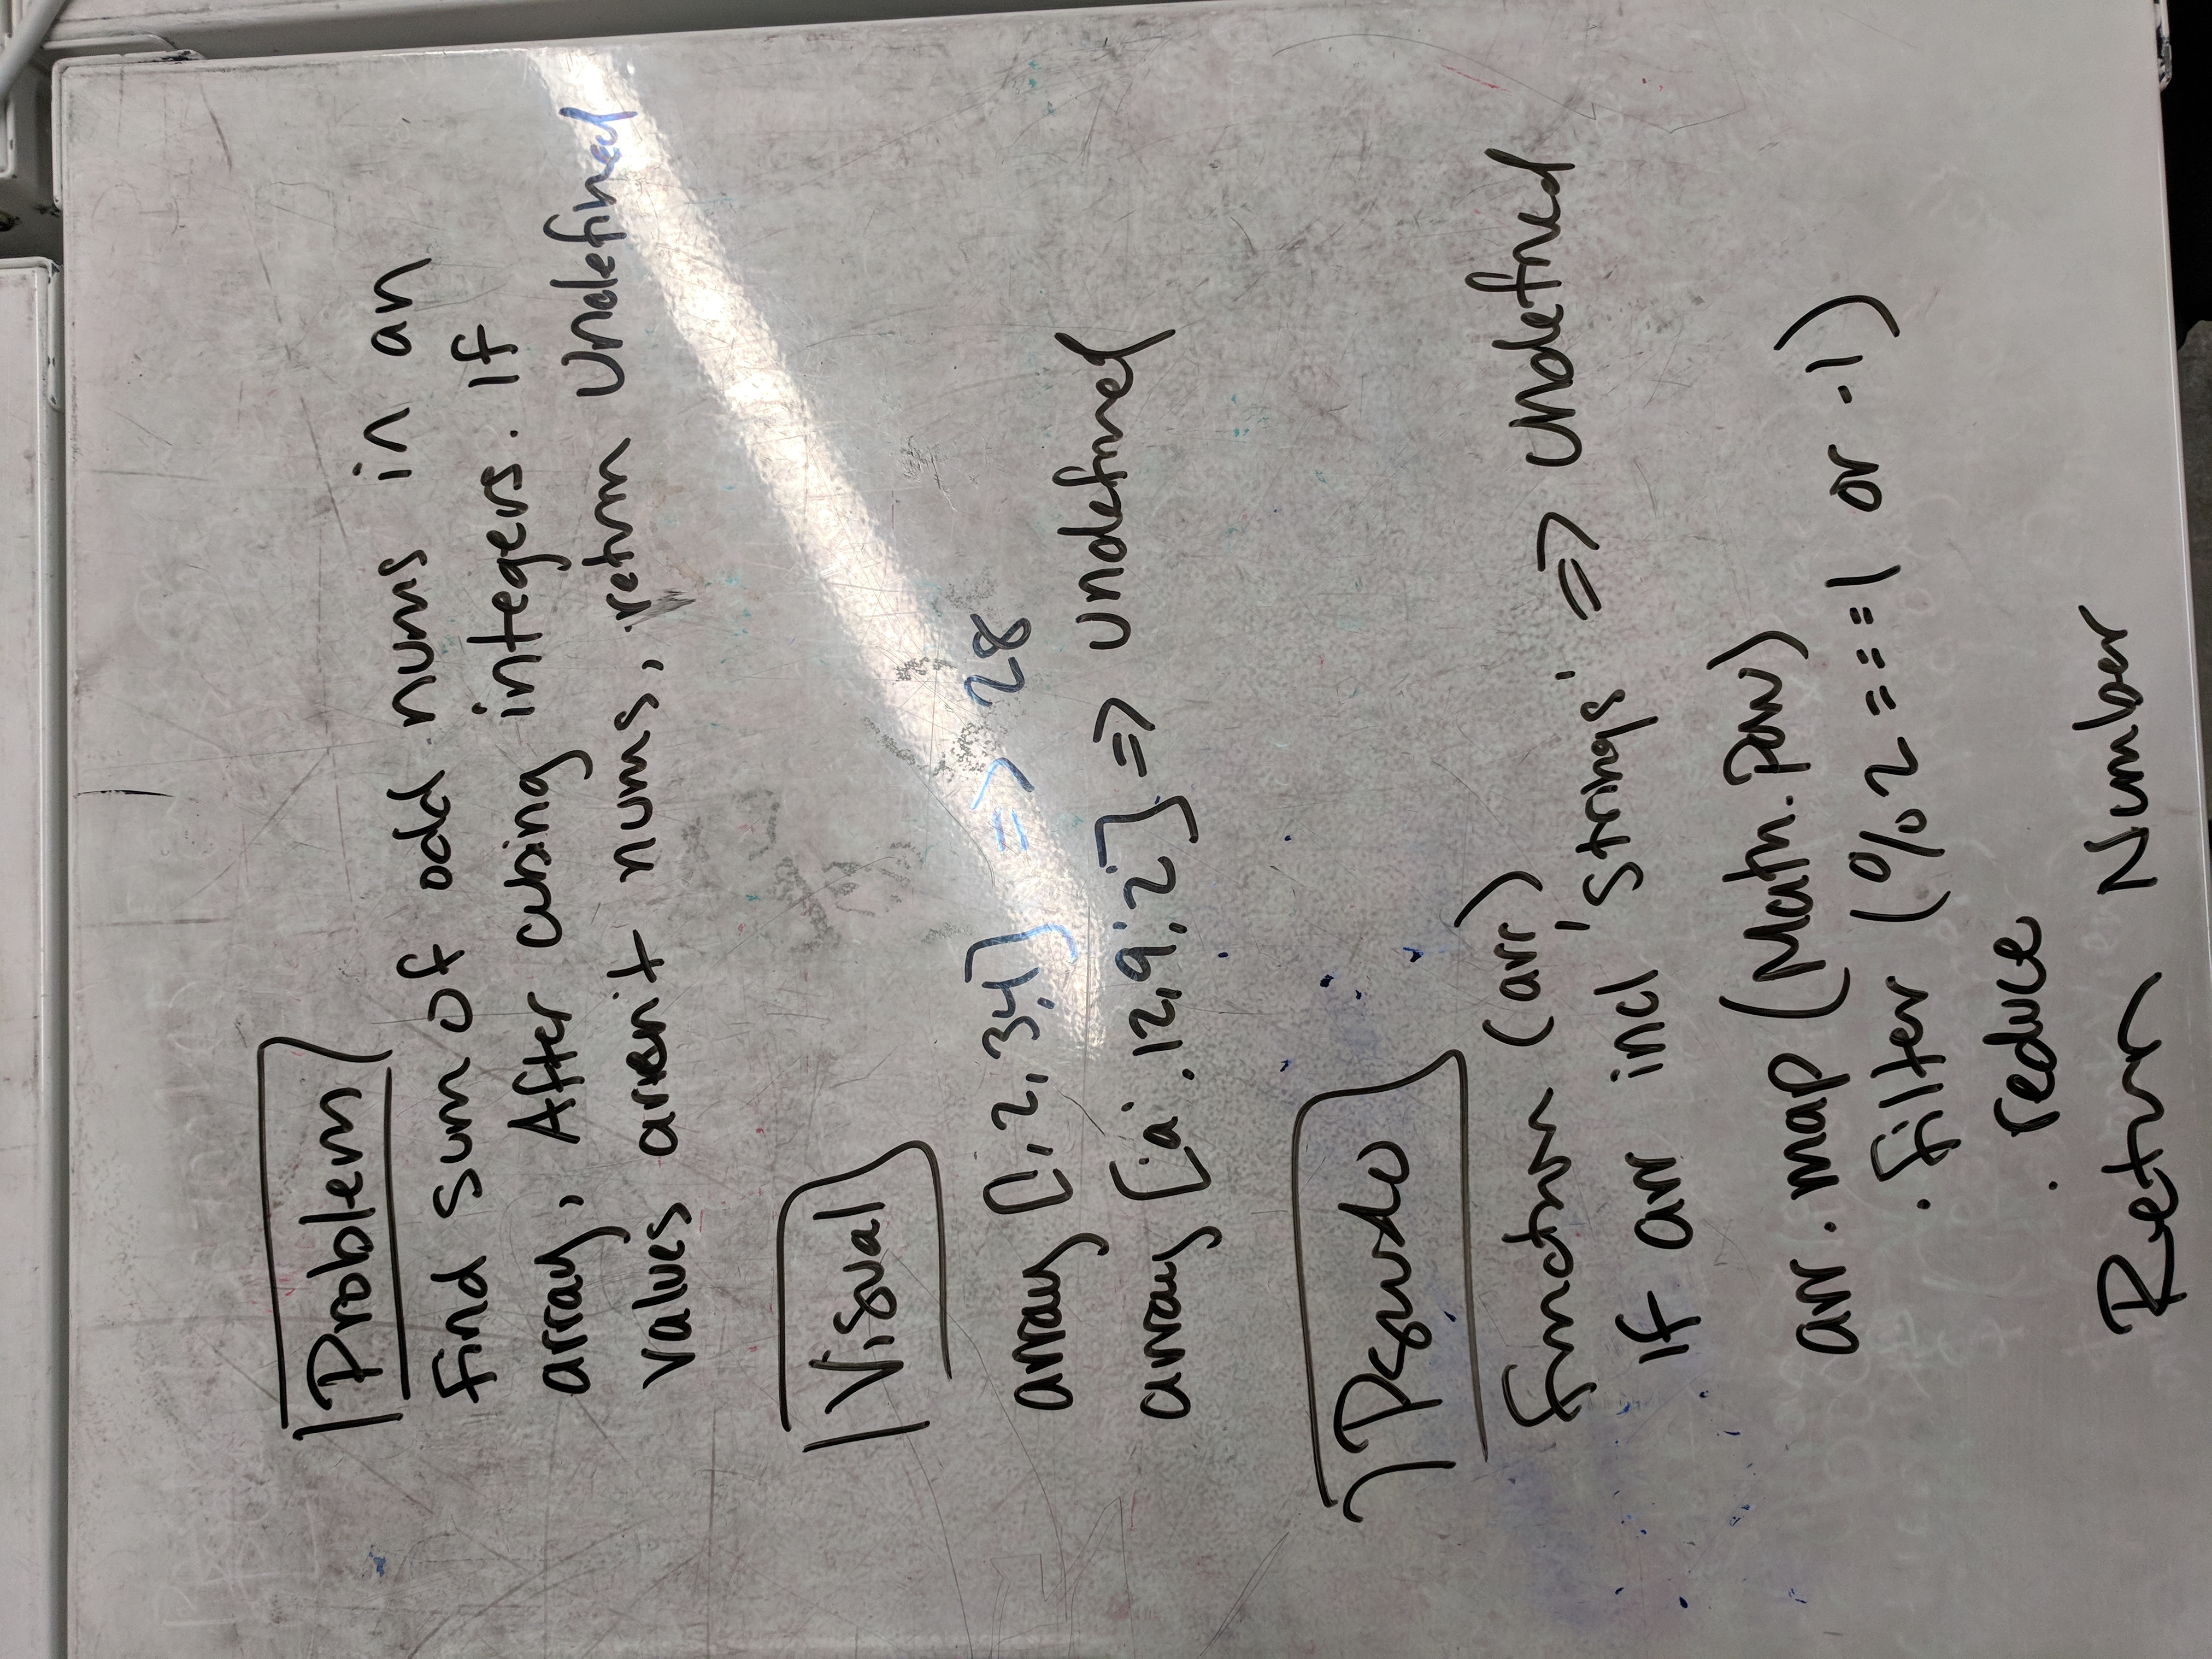 Problem
Find sum of odd nums in an
array, After cubing integers. If
values aren't nums, return undefined
Visual
array [1, 2, 3, 4] => 28
array ['a', 12, 9, 'z'] => undefined
Pseudo
Function (arr)
If arr incl 'strings' => undefined
arr.map (Math.pow)
.filter (%2 === 1 or -1)
.reduce
Return Number